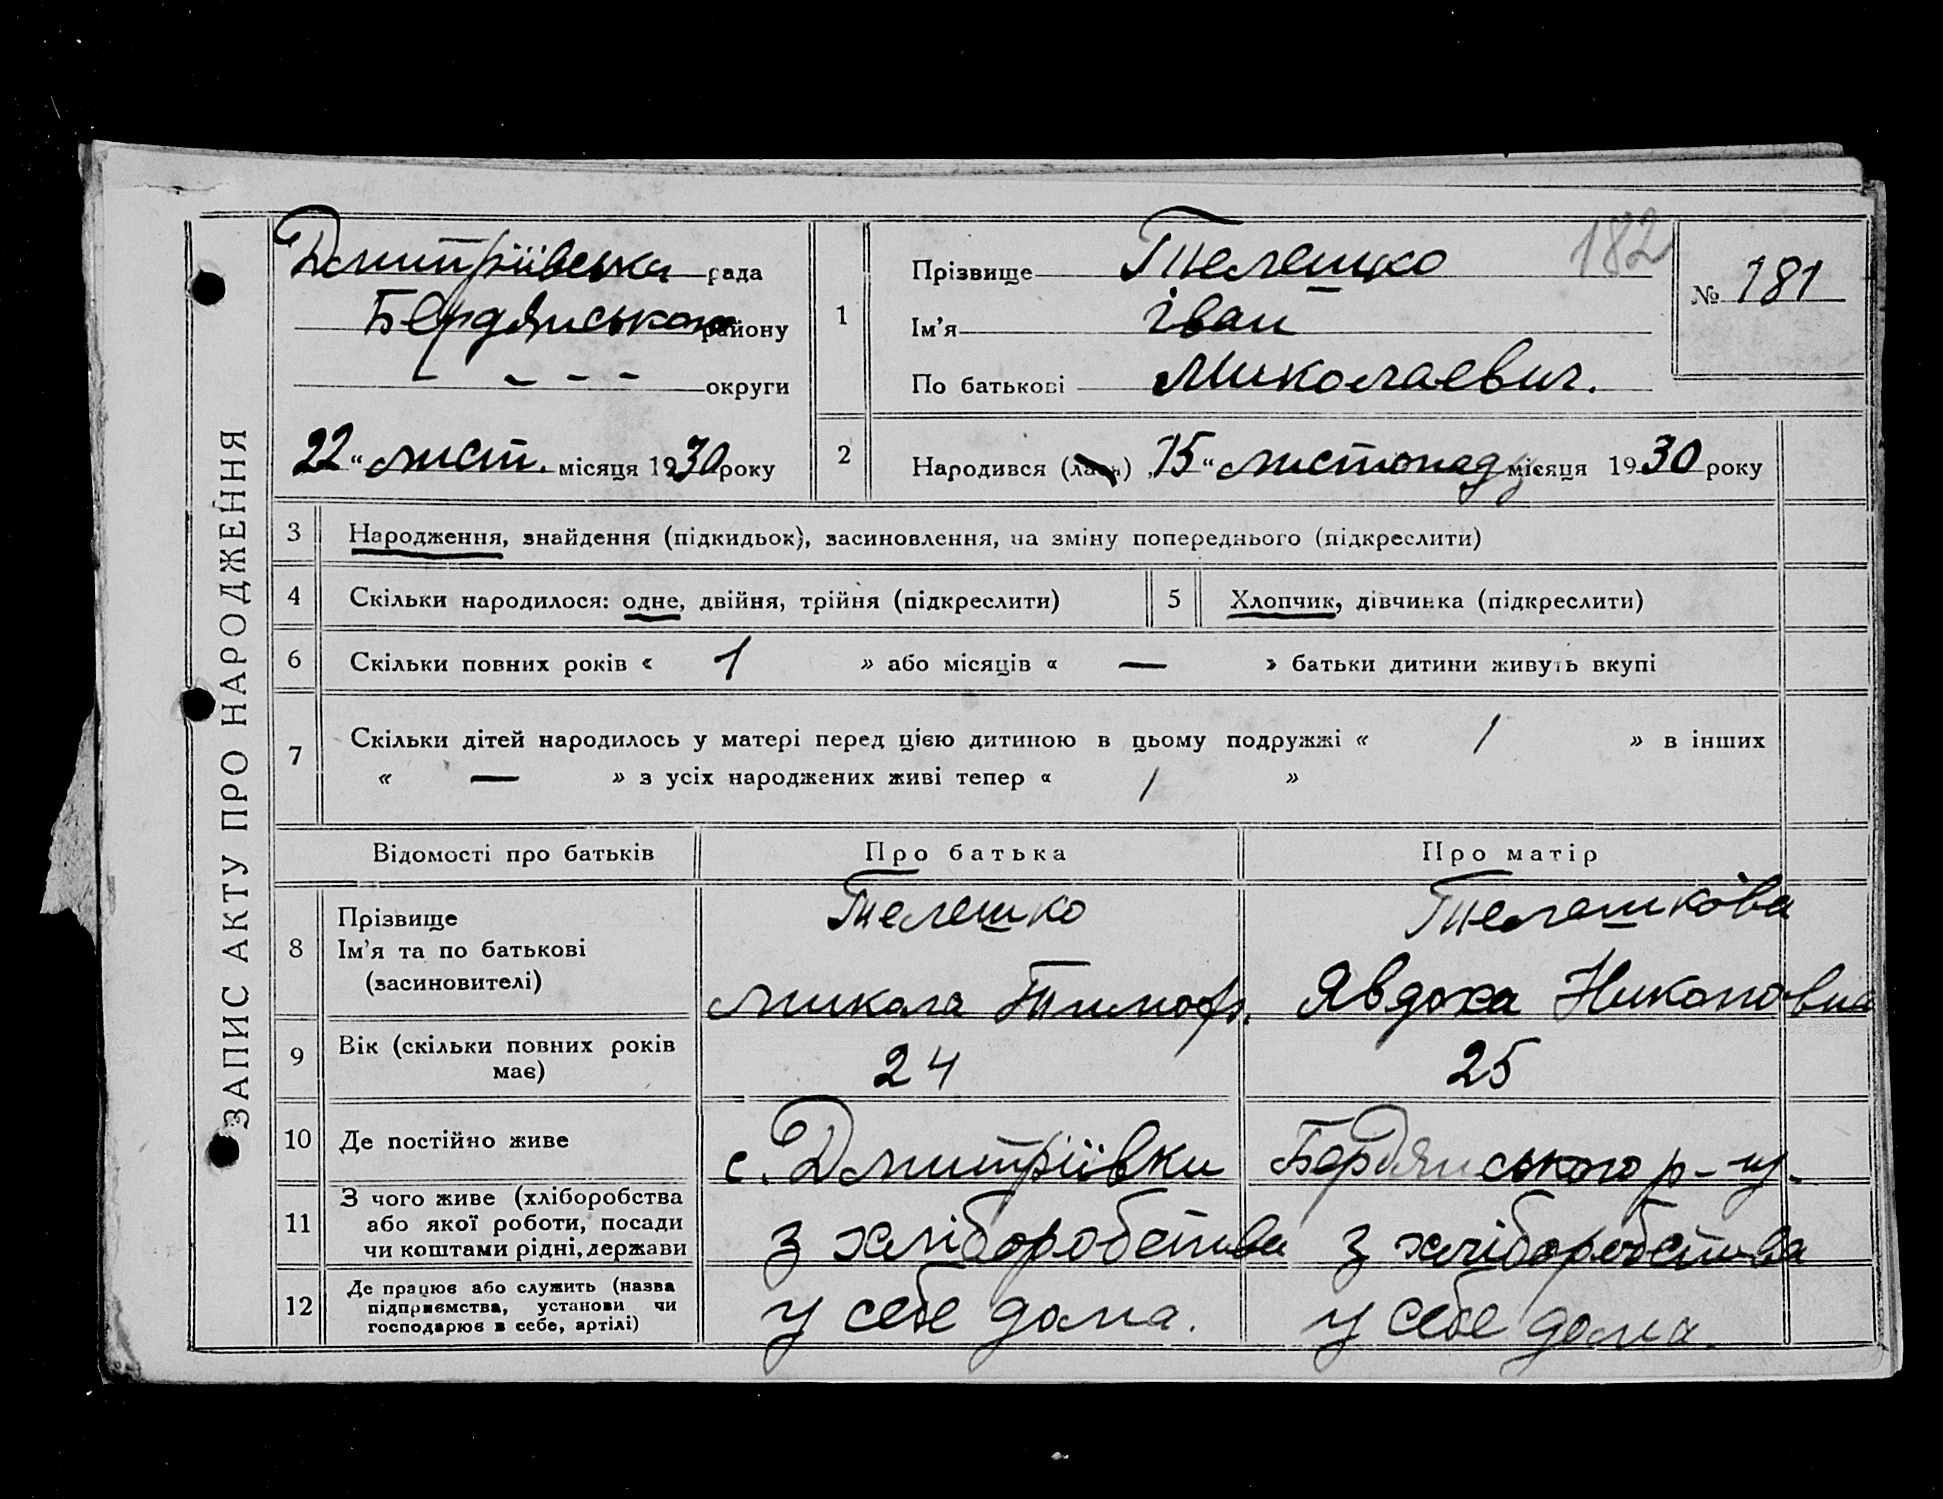 ЗАПИС АКТУ ПРО НАРОДЖЕННЯ
Дмитріївська рада
Бердянського району
- - - - округи
22 " лист. місяця 1930 року
182
1
Прізвище Телешко
Ім'я Іван
По батькові Миколаевич.
№ 181
2
Народився (лась) „15" листопаду місяця 1930 року
3 Народження, знайдення (підкидьок), засиновлення, на зміну попереднього (підкреслити)
4 Скільки народилося: одне, двійня, трійня (підкреслити)
5 Хлопчик, дівчинка (підкреслити)
6 Скільки повних років « 1 » або місяців « — » батьки дитини живуть вкупі
7 Скільки дітей народилось у матері перед цією дитиною в цьому подружжі « 1 » в інших
« — » з усіх народжених живі тепер « 1 »
Відомості про батьків Про батька Про матір
8 Прізвище
Ім'я та по батькові
(засиновителі)
Телешко
Микола Тимоф.
Телешкова
Явдоха Никоновна
9 Вік (скільки повних років
має)
24 25
10 Де постійно живе с. Дмитріївки Бердянського р-ну.
11 З чого живе (хліборобства
або якої роботи, посади
чи коштами рідні, держави
з хліборобства з хліборобства
12 Де працює або служить (назва
підприємства, установи чи
господарює в себе, артілі)
у себе дома. у себе дома.